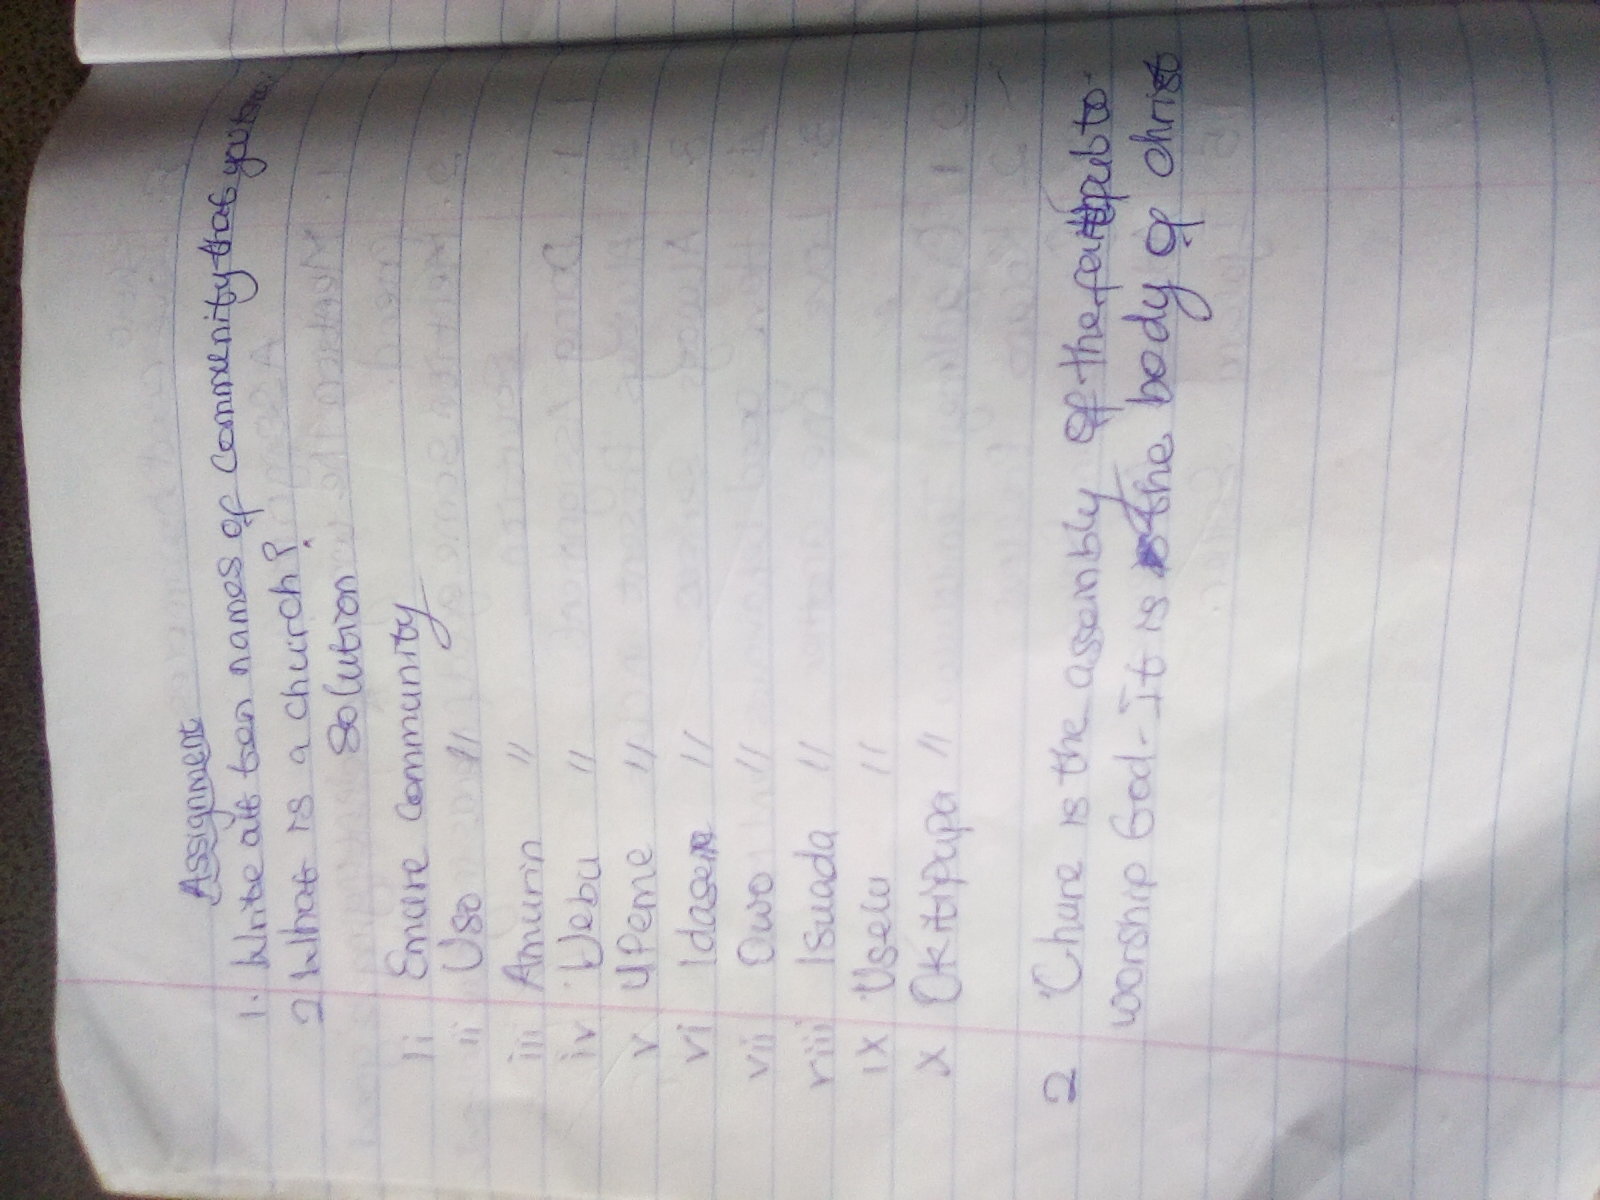 Assignment
1. Write all ten names of Community that you know
2 What is a church?
Solution
1i Emure Community
ii Uso "
iii Amurin "
iv Uebu "
v Upeme "
vi Idasen "
vii Owo "
viii Isuada "
ix Uselu "
x Okitipupa "
2 Chure is the assembly of the faithful to
worship God. It is the body of christ